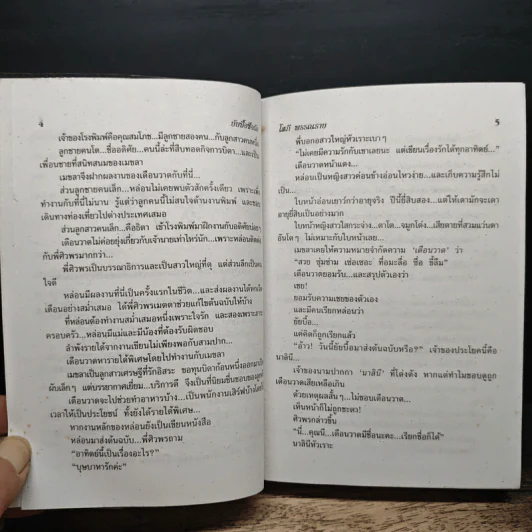 4
เจ้าของโรงพิมพ์คือคุณสมโภช...มีลูกชายสองคน...กับลูกสาวคนหนึ่ง
ลูกชายคนโต...ชื่ออติศัย...คนนี้ล่ะที่สืบทอดกิจการบิดา...และเป็น
เพื่อนชายที่สนิทสนมของเมขลา
เมขลาจึงฝากผลงานของเดือนวาดกับที่นี่...
ส่วนลูกชายคนเล็ก...หล่อนไม่เคยพบตัวสักครั้งเดียว เพราะเพิ่ง
ทำงานกับที่นี่ไม่นาน รู้แต่ว่าลูกคนนี้ไม่สนใจด้านงานพิมพ์ และชอบ
เดินทางท่องเที่ยวไปต่างประเทศเสมอ
ส่วนลูกสาวคนเล็ก...คือธิดา เข้าโรงพิมพ์มาฝึกงานกับอติศัยบ่อยๆ
เดือนวาดไม่ค่อยยุ่งเกี่ยวกับเจ้านายเท่าไหร่นัก...เพราะหล่อนติดต่อ
กับพี่ศิวพรมากกว่า...
พี่ศิวพรเป็นบรรณาธิการและเป็นสาวใหญ่ที่ดุ แต่ส่วนลึกเป็นคน
ใจดี
หล่อนมีผลงานที่นี่เป็นครั้งแรกในชีวิต...และส่งผลงานได้ทุก
เดือนอย่างสม่ำเสมอ ได้พี่ศิวพรเมตตาช่วยแก้ไขต้นฉบับให้บ้าง
ที่หล่อนต้องทำงานสม่ำเสมอหนึ่งเพราะใจรัก และสองเพราะ
ครอบครัว...หล่อนมีแม่และมีน้องที่ต้องรับผิดชอบ
ลำพังรายได้จากงานเขียนไม่เพียงพอกับสามปาก...
เดือนวาดหารายได้พิเศษโดยไปทำงานกับเมขลา
เมขลาเป็นลูกสาวเศรษฐีที่รักอิสระ ขอทุนบิดาก้อนหนึ่งออกมา
ผับเล็กๆ แต่บรรยากาศเยี่ยม...บริการดี จึงเป็นที่นิยมชื่นชอบของ
เดือนวาดจะไปช่วยทำอาหารบ้าง...เป็นพนักงานเสิร์ฟบ้าง
เวลาให้เป็นประโยชน์ ทั้งยังได้รายได้พิเศษ...
หากงานหลักของหล่อนยังเป็นเขียนหนังสือ
หล่อนมาส่งต้นฉบับ...พี่ศิวพรถาม
“อาทิตย์นี้เป็นเรื่องอะไร?”
“บุษบาหารักค่ะ”
โสภี พรรณราย
5
พี่บอกอสาวใหญ่หัวเราะเบาๆ
“ไม่เคยมีความรักกับเขาเลยนะ แต่เขียนเรื่องรักได้ทุกอาทิตย์...”
เดือนวาดหน้าแดง...
หล่อนเป็นหญิงสาวค่อนข้างอ่อนไหวง่าย...และเก็บความรู้สึกไม่
เป็น...
ใบหน้าอ่อนเยาว์กว่าอายุจริง ปีนี้ยี่สิบสอง...แต่ให้เดามักจะเดา
อายุยี่สิบเป็นอย่างมาก
ใบหน้าหญิงสาวใสกระจ่าง...ตาโต...จมูกโด่ง...เสียดายที่สวมแว่นตา
อันโตๆ ไม่เหมาะกับใบหน้าเลย...
เมขลาเคยให้ความหมายจำกัดความ ‘เดือนวาด’ ว่า
“สวย ซุ่มซ่าม เซ่อเซอะ ที่อมะลื่อ ซื่อ ขี้ลืม”
เดือนวาดยอมรับ...และสรุปตัวเองว่า
เชย!
ยอมรับความเชยของตัวเอง
และมีคนเรียกหล่อนว่า
ยัยบื้อ...
แค่คิดก็ถูกเรียกแล้ว
“อ้าว! วันนี้ยัยบื้อมาส่งต้นฉบับหรือ?” เจ้าของประโยคนี้คือ
นาลินี...
เจ้าของนามปากกา ‘นาสินี’ ที่โด่งดัง หากแต่ทำไมชอบดูถูก
เดือนวาดเสียเหลือเกิน
ด้วยเหตุผลสั้นๆ...ไม่ชอบเดือนวาด...
เห็นหน้าก็ไม่ถูกชะตา!
ศิวพรกล่าวขึ้น
“นี่...คุณนี...เดือนวาดมีชื่อนะคะ...เรียกชื่อก็ได้”
นาลินีหัวเราะ